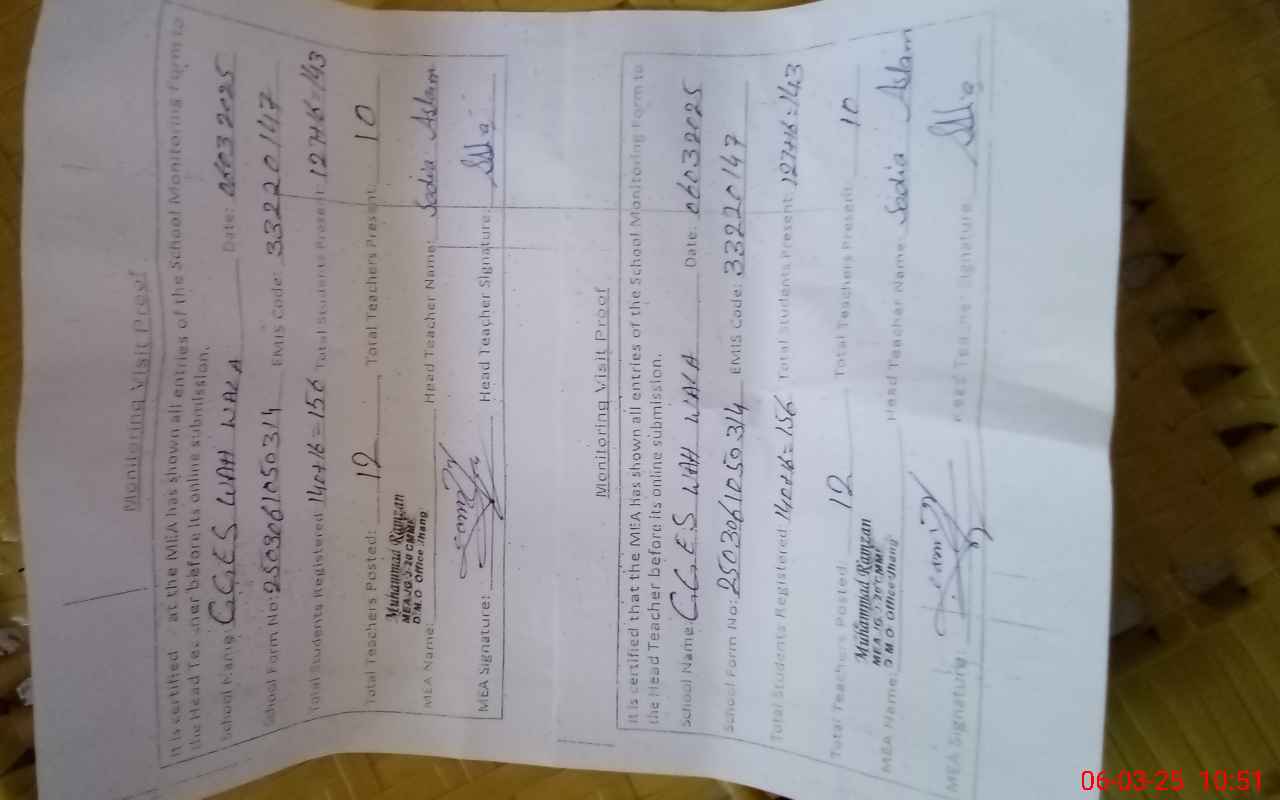 Monitoring Visit Proof
It is certified at the MEA has shown all entries of the School Monitoring Form to
the Head Teacher before its online submission.
School Name: G.G.E.S WAH WALA Date: 06032025
School Form No: 2503061050314 EMIS Code: 33220147
Total Students Registered: 140+16=156 Total Students Present: 127+16=143
Total Teachers Posted: 12 Total Teachers Present: 10
Muhammad Ramzan
MEA JG 3-20 CMMF
D.M.O Office Jhang
MEA Name: Head Teacher Name: Sadia Aslam
MEA Signature: Head Teacher Signature:
Monitoring Visit Proof
It is certified that the MEA has shown all entries of the School Monitoring Form to
the Head Teacher before its online submission.
School Name: G.G.E.S WAH WALA Date: 06032025
School Form No: 2503061050314 EMIS Code: 33220147
Total Students Registered: 140+16=156 Total Students Present: 127+16=143
Total Teachers Posted: 12 Total Teachers Present: 10
Muhammad Ramzan
MEA JG 3-20 CMMF
D.M.O Office Jhang
MEA Name: Head Teacher Name: Sadia Aslam
MEA Signature: Head Teacher Signature
06-03-25 10:51